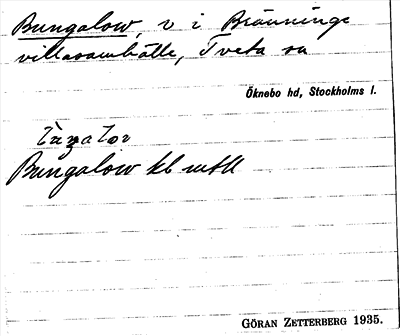 Bungalow, v i Bränninge
villasamhälle, Tveta sn
Öknebo hd, Stockholms l.
Bungalow kb mtll
GÖRAN ZETTERBERG 1935.